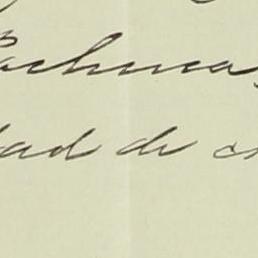 Pachuca,
dad de